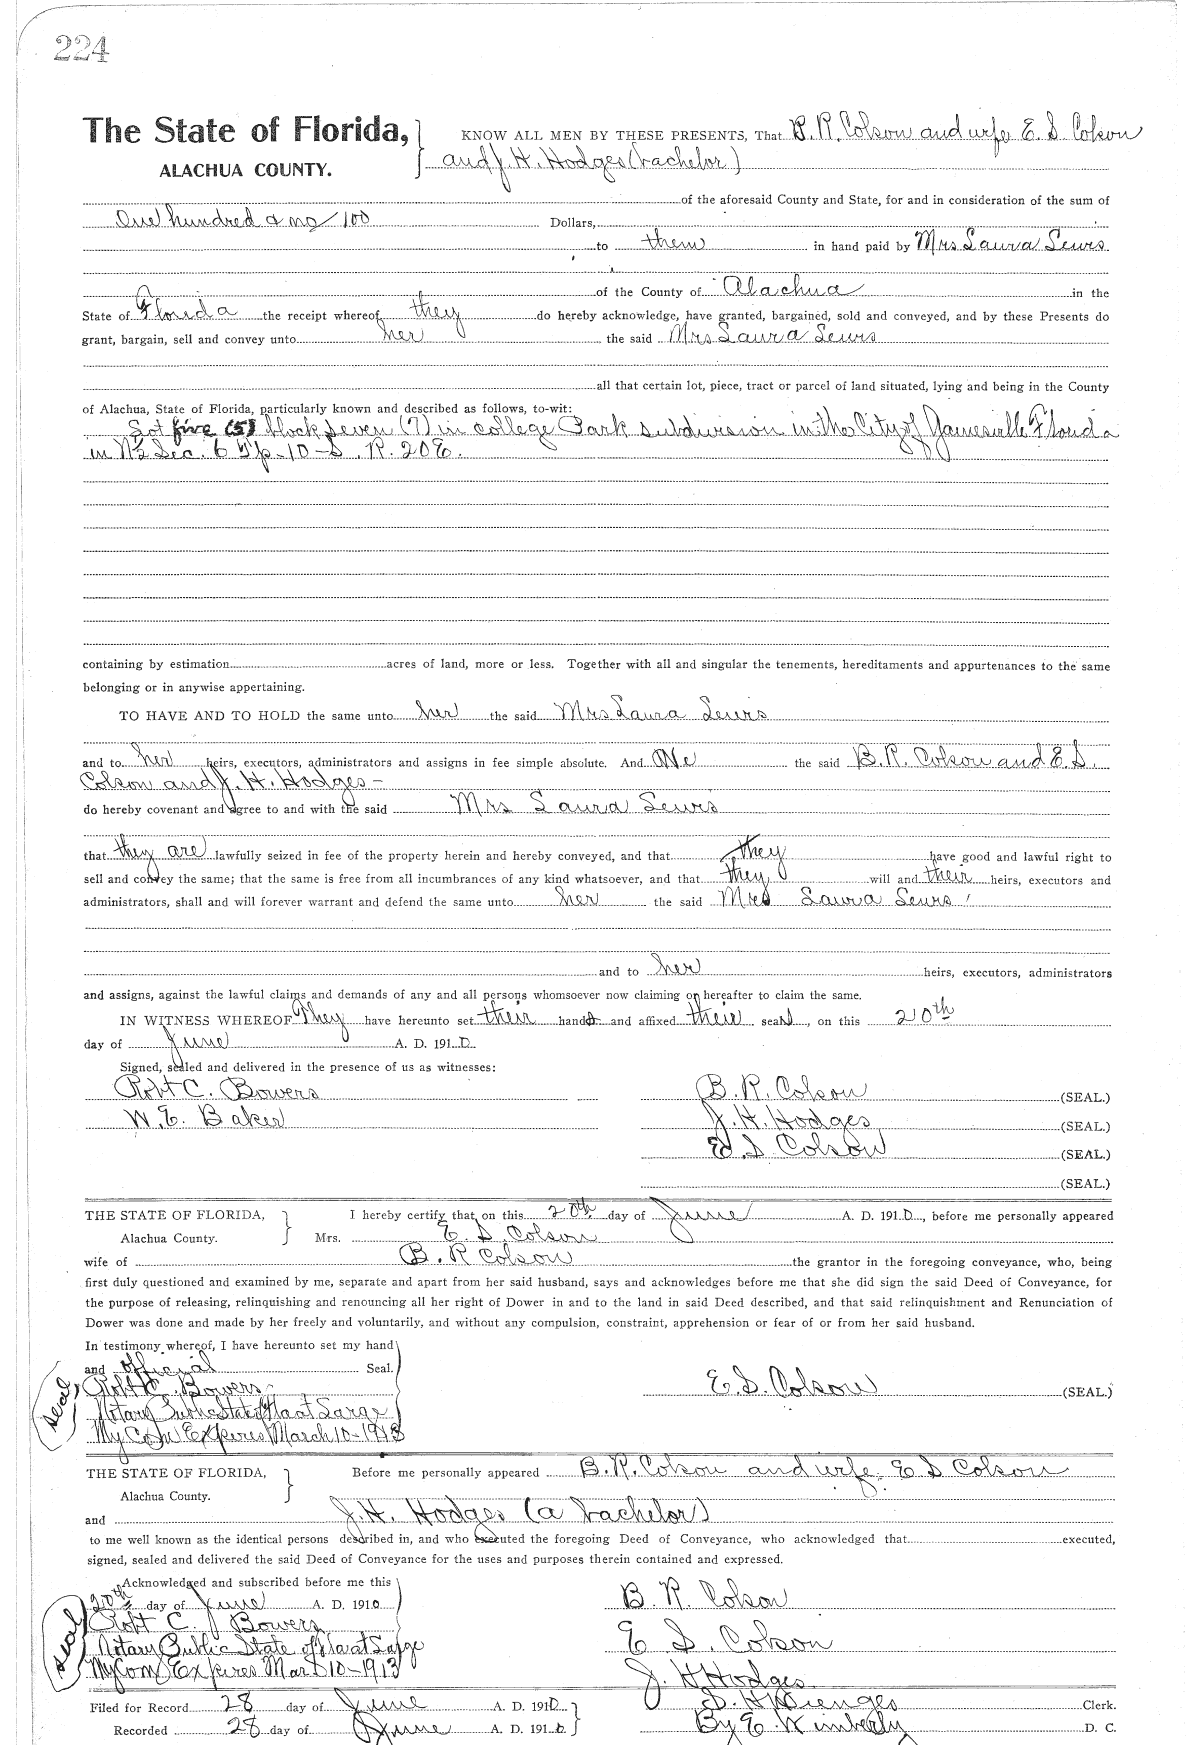 224
The State of Florida, KNOW ALL MEN BY THESE PRESENTS, That B. R. Colson and wife E. S. Colson
ALACHUA COUNTY. and J. H. Hodges (bachelor)
of the aforesaid County and State, for and in consideration of the sum of
One hundred & no/100 Dollars,
to them in hand paid by Mrs Laura Lewis
of the County of Alachua in the
State of Florida the receipt whereof they do hereby acknowledge, have granted, bargained, sold and conveyed, and by these Presents do
grant, bargain, sell and convey unto her the said Mrs Laura Lewis
all that certain lot, piece, tract or parcel of land situated, lying and being in the County
of Alachua, State of Florida, particularly known and described as follows, to-wit:
Lot five (5) block seven (7) in college Park subdivision in the City of Gainesville Florida
in N½ Sec. 6 Tp-10-S. R. 20E.
containing by estimation acres of land, more or less. Together with all and singular the tenements, hereditaments and appurtenances to the same
belonging or in anywise appertaining.
TO HAVE AND TO HOLD the same unto her the said Mrs Laura Lewis
and to her heirs, executors, administrators and assigns in fee simple absolute. And We the said B. R. Colson and E. S.
Colson and J. H. Hodges-
do hereby covenant and agree to and with the said Mrs Laura Lewis
that they are lawfully seized in fee of the property herein and hereby conveyed, and that they have good and lawful right to
sell and convey the same; that the same is free from all incumbrances of any kind whatsoever, and that they will and their heirs, executors and
administrators, shall and will forever warrant and defend the same unto her the said Mrs Laura Lewis
and to her heirs, executors, administrators
and assigns, against the lawful claims and demands of any and all persons whomsoever now claiming or hereafter to claim the same.
IN WITNESS WHEREOF They have hereunto set their hands and affixed their seals, on this 20th
day of June A. D. 1910.
Signed, sealed and delivered in the presence of us as witnesses:
Robt C. Bowers B. R. Colson (SEAL.)
W. E. Baker J. H. Hodges (SEAL.)
E. S Colson (SEAL.)
(SEAL.)
THE STATE OF FLORIDA, I hereby certify that on this 20th day of June A. D. 1910, before me personally appeared
Alachua County. Mrs. E. S. Colson
wife of B. R Colson the grantor in the foregoing conveyance, who, being
first duly questioned and examined by me, separate and apart from her said husband, says and acknowledges before me that she did sign the said Deed of Conveyance, for
the purpose of releasing, relinquishing and renouncing all her right of Dower in and to the land in said Deed described, and that said relinquishment and Renunciation of
Dower was done and made by her freely and voluntarily, and without any compulsion, constraint, apprehension or fear of or from her said husband.
In testimony whereof, I have hereunto set my hand
and official Seal.
Seal, Robt C. Bowers- E. S. Colson (SEAL.)
Notary Public State of Fla at Large
My Com Expires March 10-1913
THE STATE OF FLORIDA, Before me personally appeared B. R. Colson and wife. E S Colson
Alachua County.
and J. H. Hodges (a bachelor)
to me well known as the identical persons described in, and who executed the foregoing Deed of Conveyance, who acknowledged that executed,
signed, sealed and delivered the said Deed of Conveyance for the uses and purposes therein contained and expressed.
Acknowledged and subscribed before me this
20th day of June A. D. 1910 B. R. Colson
Seal Robt C. Bowers
Notary Public State of Fla at Large E S. Colson
My Com Expires Mar 10-1913 J. H Hodges
Filed for Record 28 day of June A. D. 1910 S. H Wienges Clerk.
Recorded 28 day of June A. D. 1910 By E. Wimberly D. C.